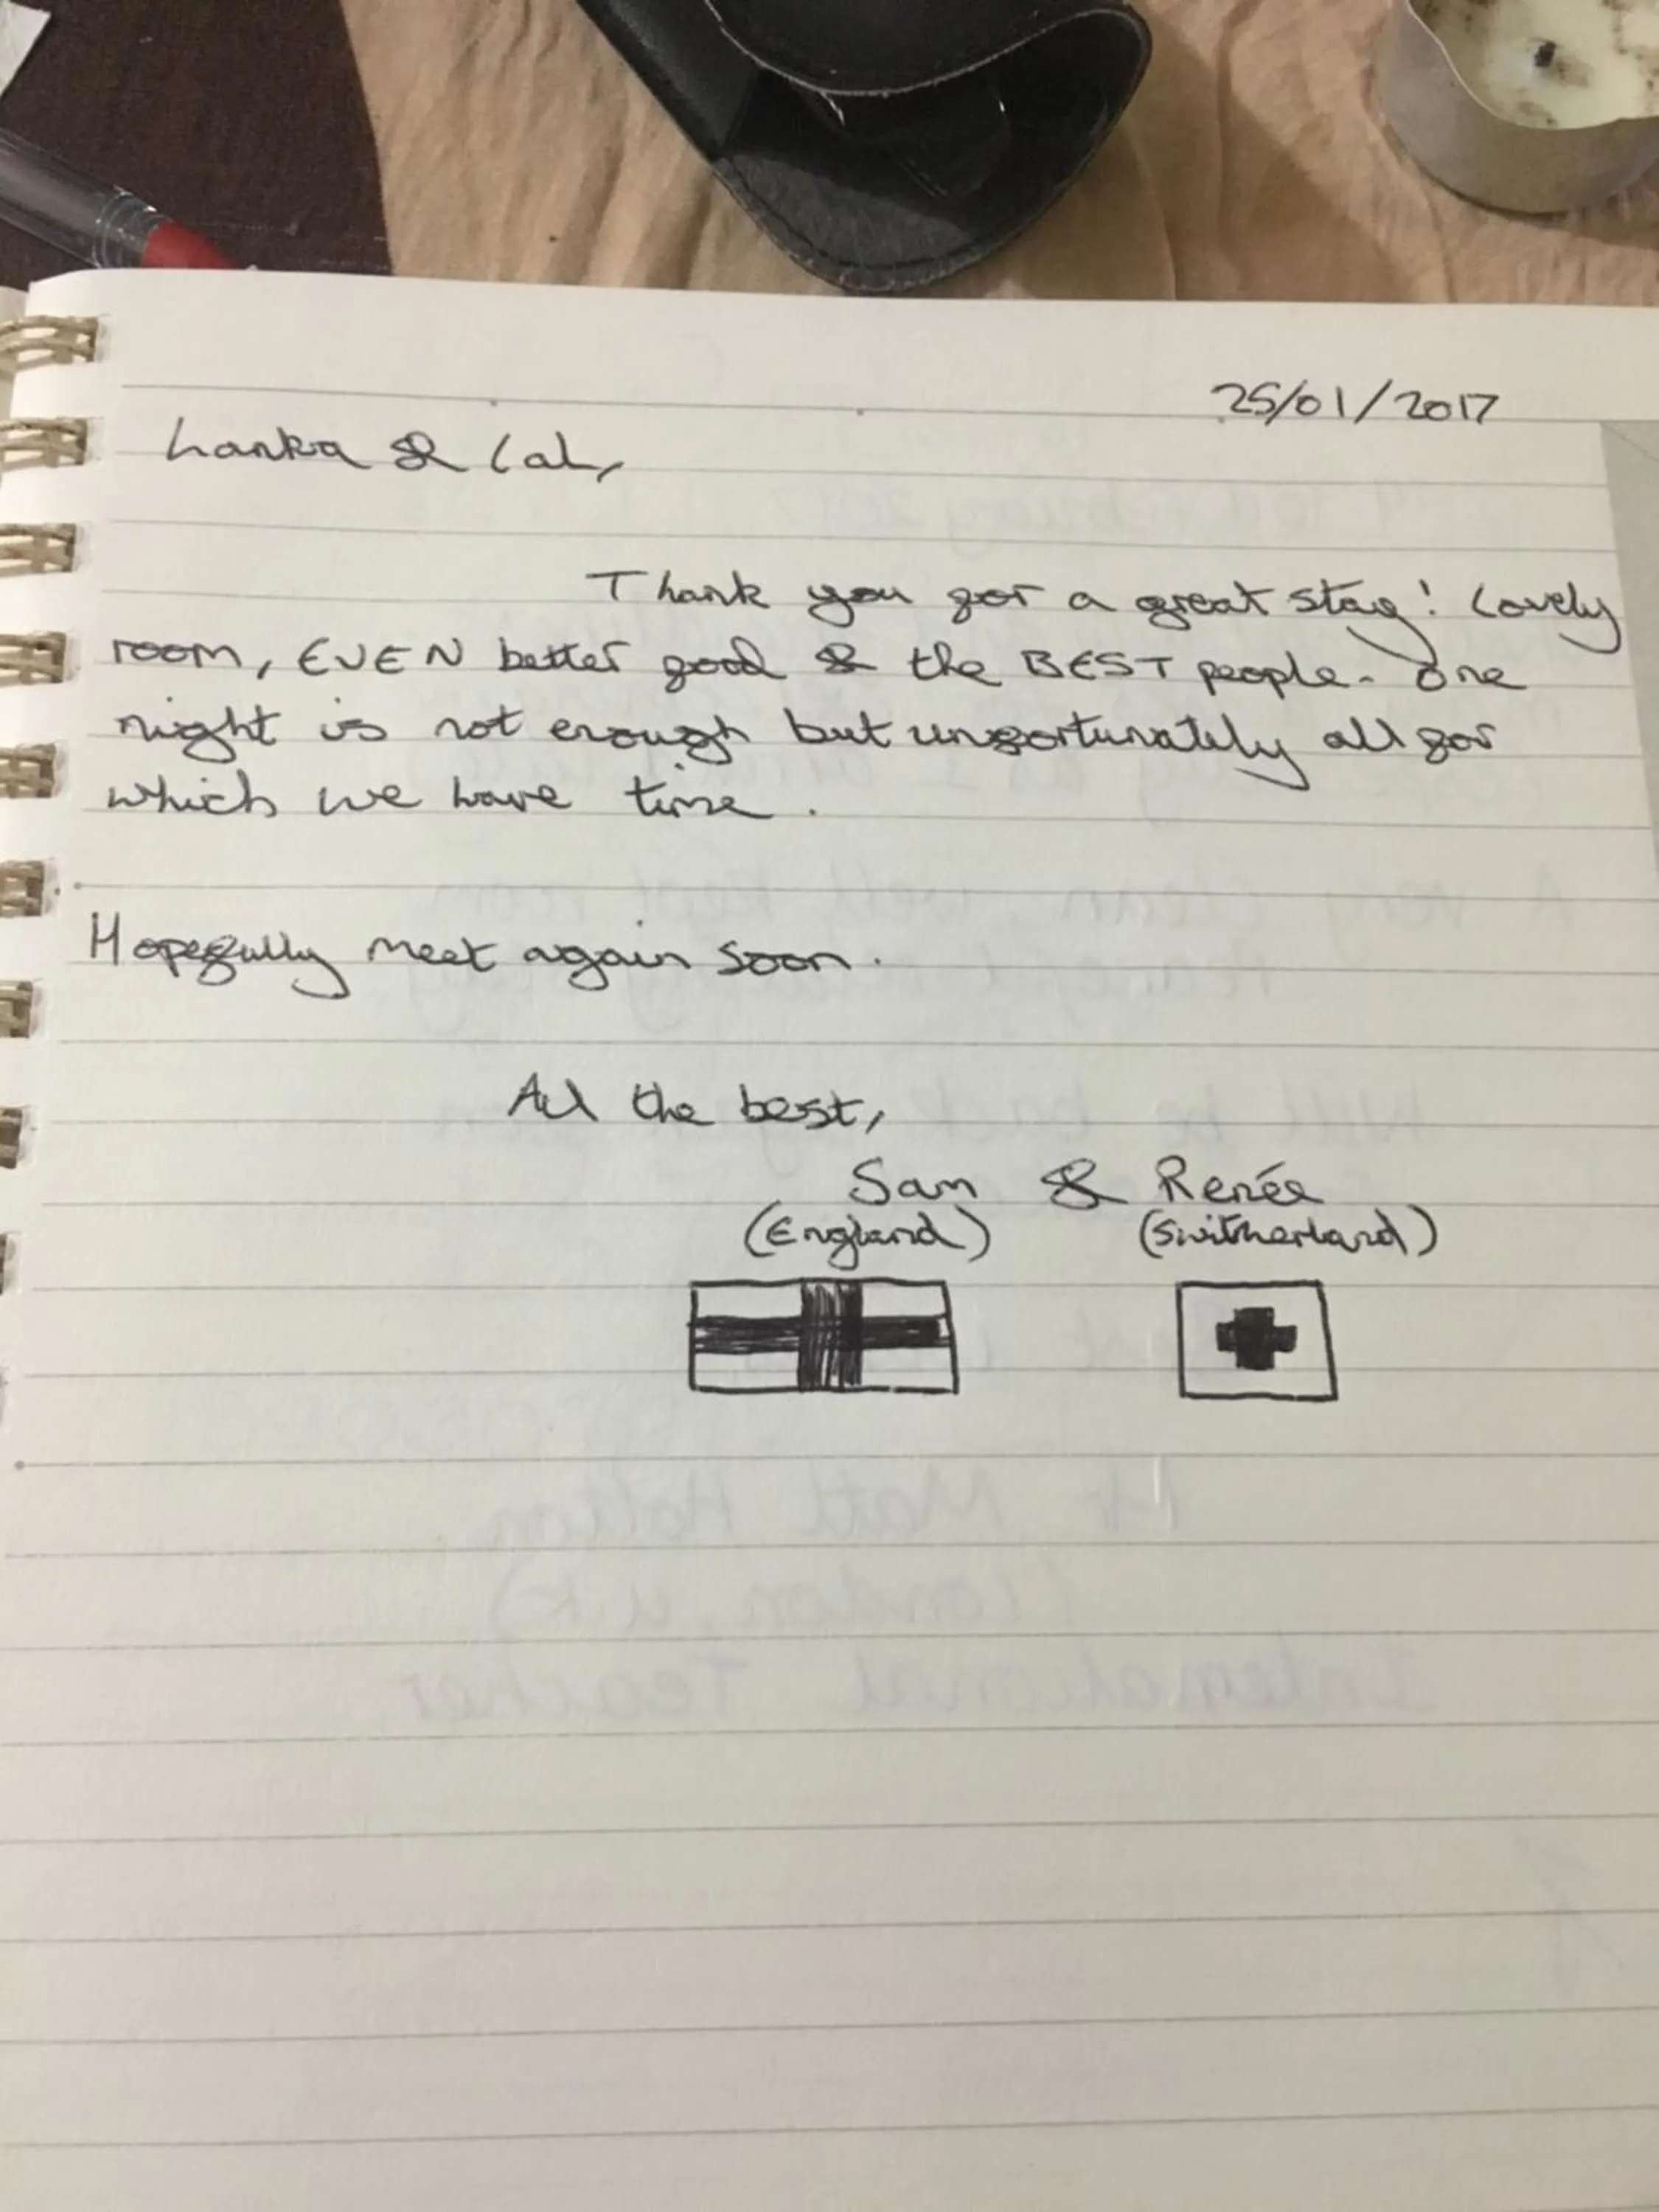 25/01/2017
Lanka & Lal,
Thank you for a great stay! Lovely
room, EVEN better food & the BEST people. One
night is not enough but unfortunately all for
which we have time.
Hopefully meet again soon.
All the best,
Sam & Renée
(England) (Switherland)